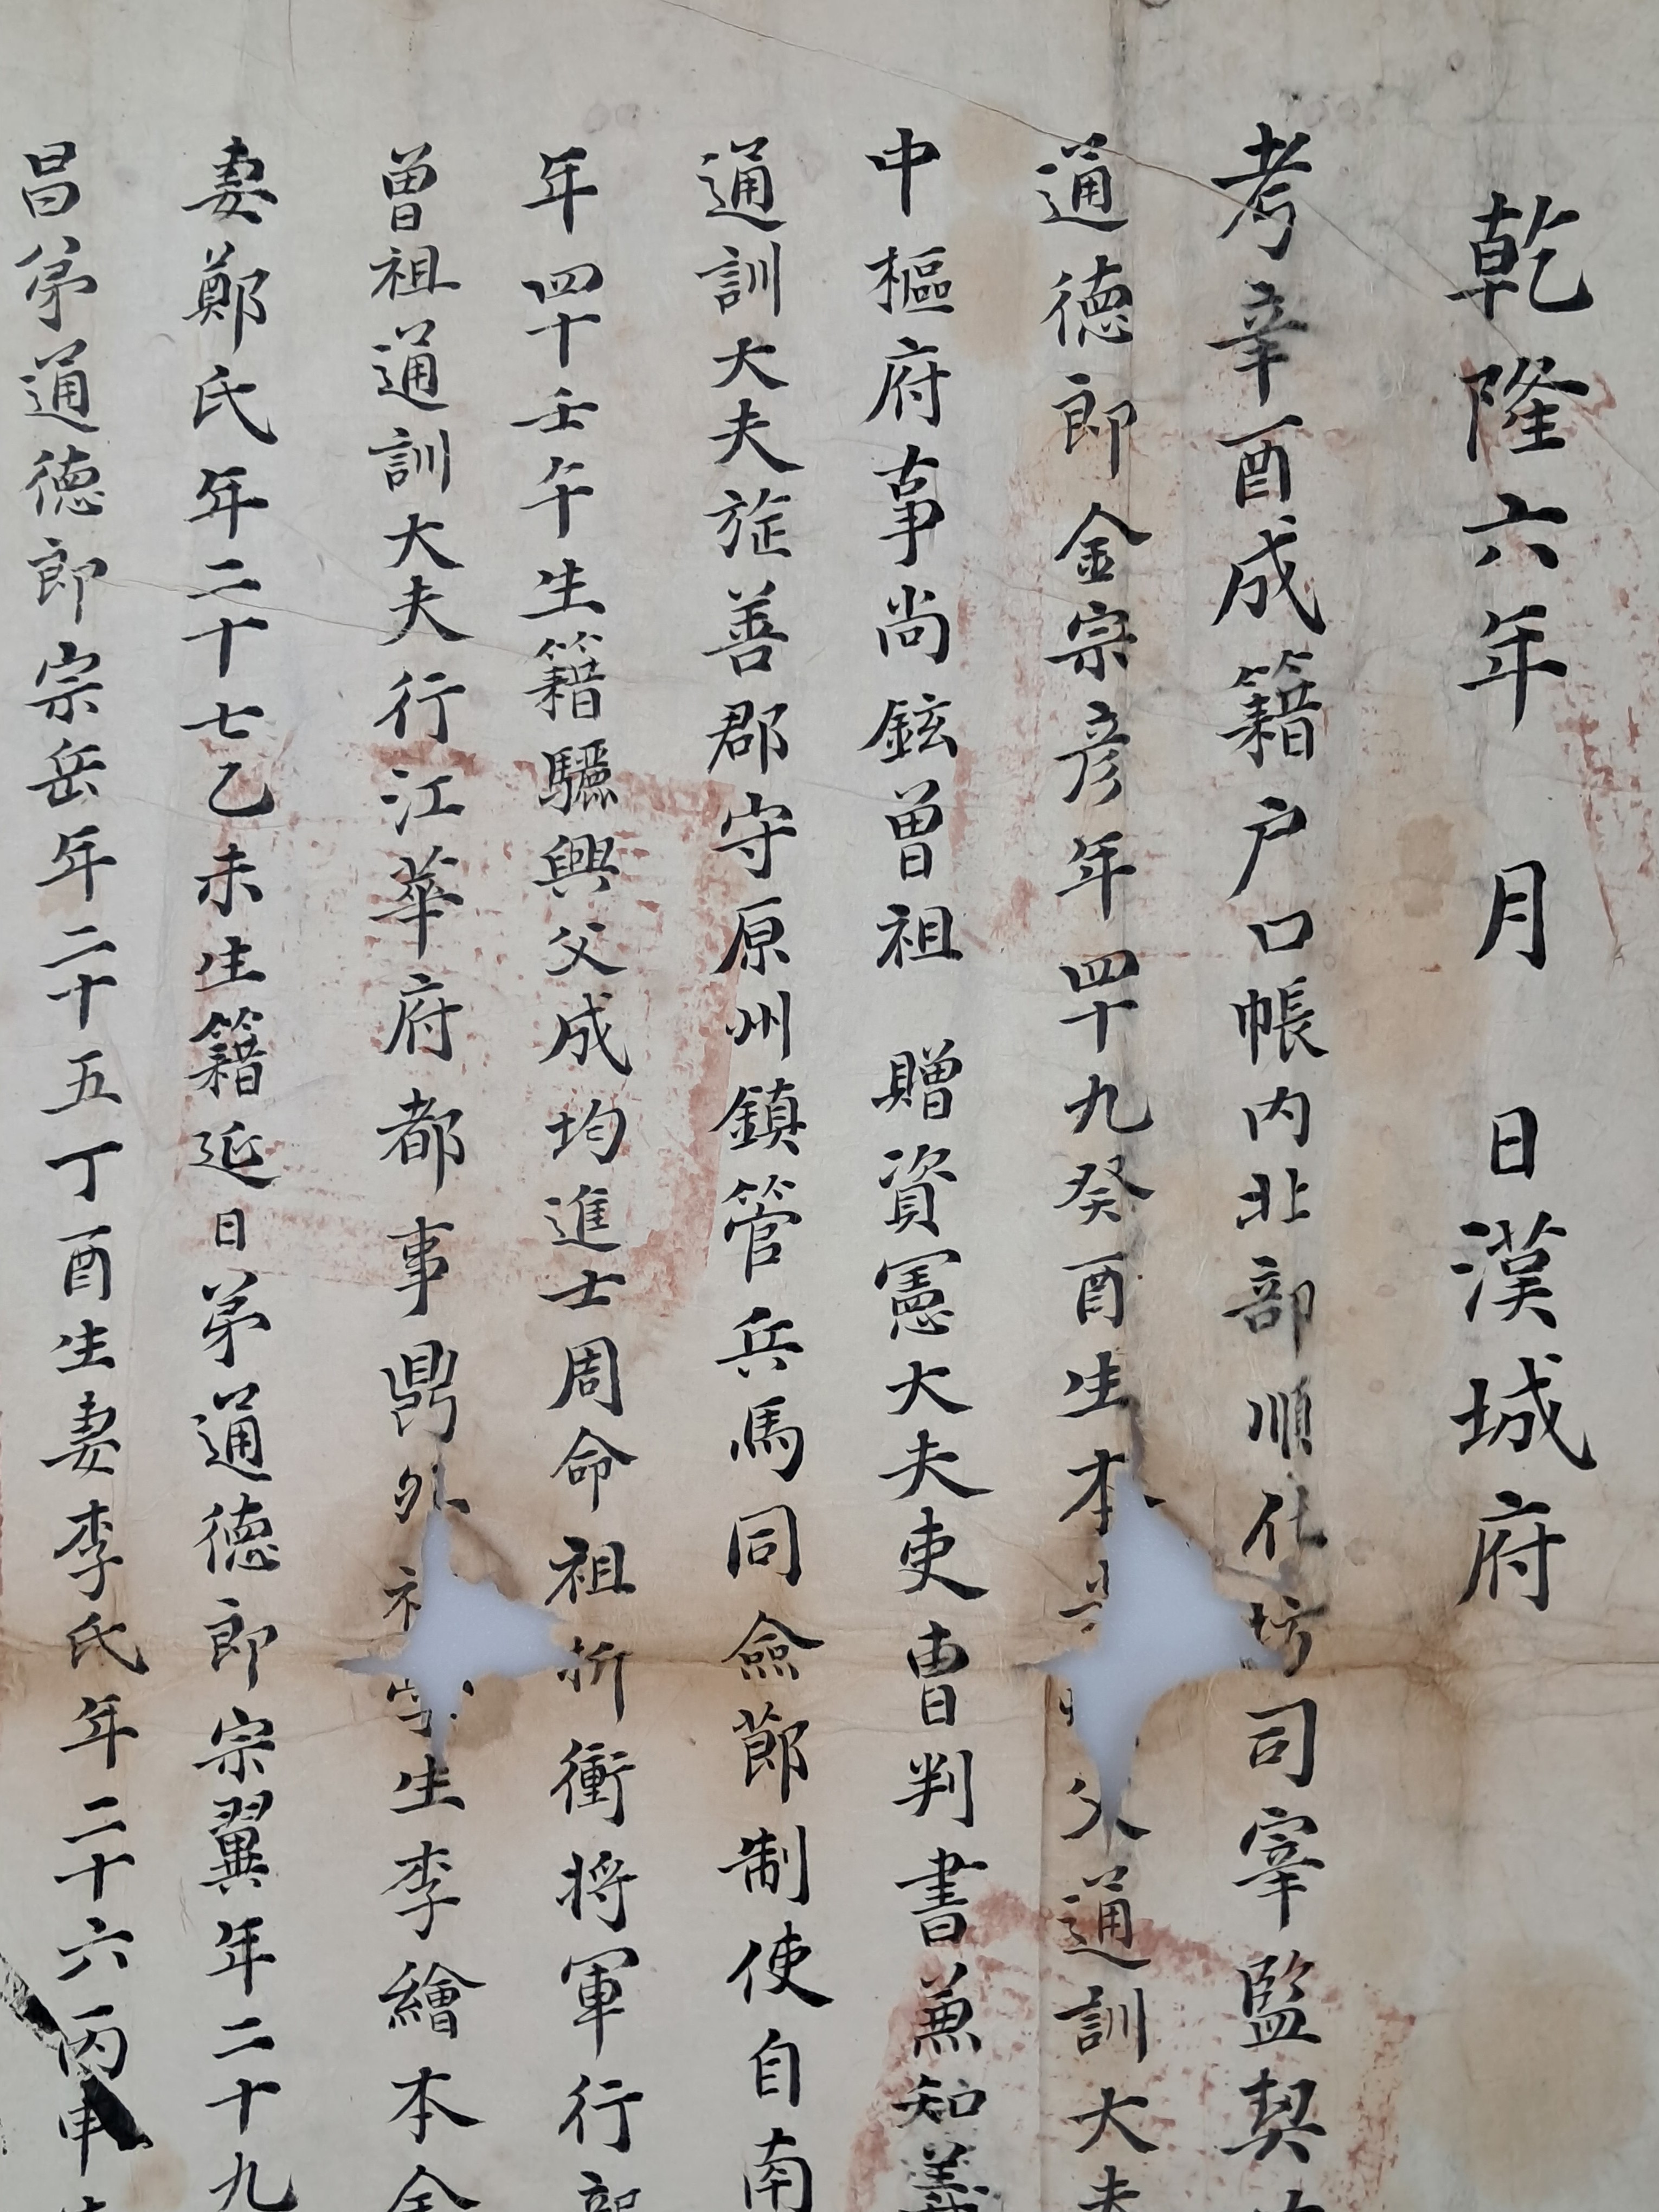 乾隆六年 月 日漢城府
考辛酉成籍户口帳内北部順化坊司宰監契
通德郎金宗彦年四十九癸酉生本 父通訓大夫
中樞府事尚鉉曾祖 贈資憲大夫吏曹判書兼知義
通訓大夫旌善郡守原州鎮管兵馬同僉節制使自南
年四十壬午生籍驪興父成均進士周命祖折衝將軍行部
曾祖通訓大夫行江華府都事鼎外 生李繪本全
妻鄭氏年二十七乙未生籍延日弟通德郎宗翼年二十九
昌弟通德郎宗岳年二十五丁酉生妻李氏年二十六丙申